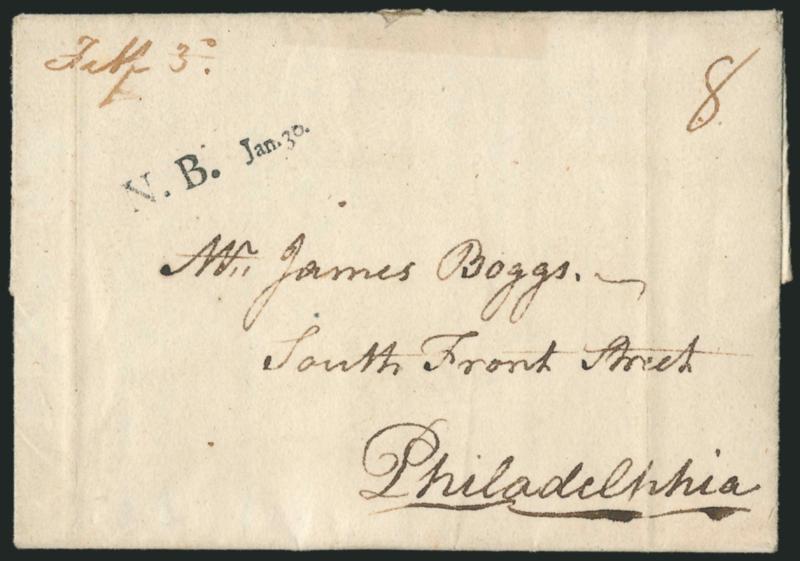 8
N. B. Jan. 30.
Mr. James Boggs.
South Front Street
Philadelphia